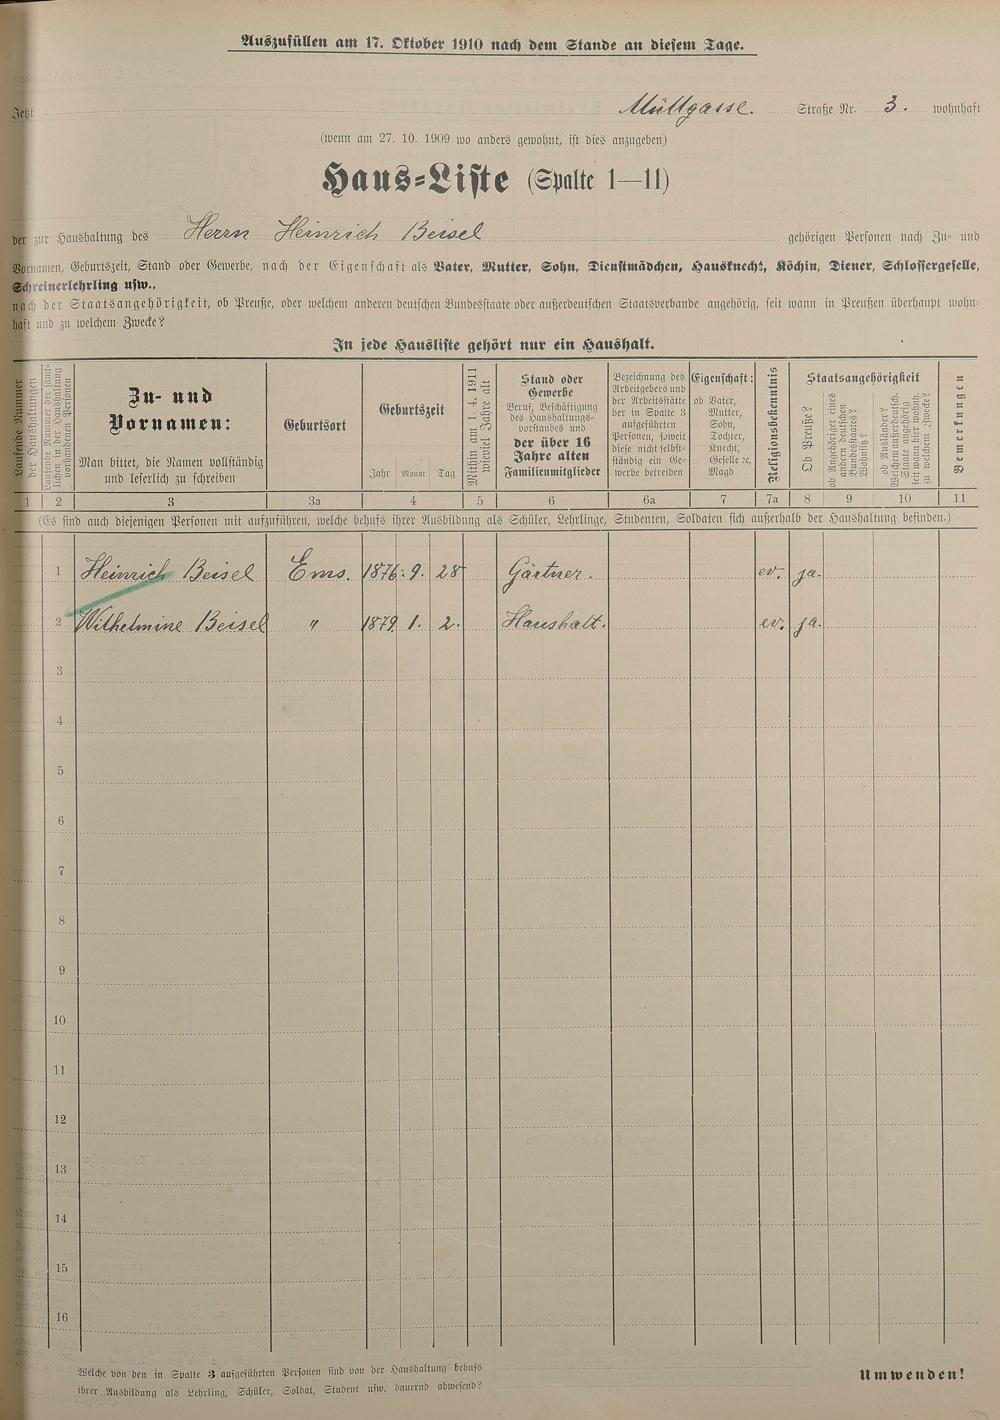 Auszufüllen am 17. Oktober 1910 nach dem Stande an diesem Tage.
Jetzt Müllgasse. Straße Nr. 3. wohnhaft
(wenn am 27. 10. 1909 wo anders gewohnt, ist dies anzugeben)
Haus-Liste (Spalte 1—11)
der zur Haushaltung des Herrn Heinrich Beisel gehörigen Personen nach Zu- und
Vornamen, Geburtszeit, Stand oder Gewerbe, nach der Eigenschaft als Vater, Mutter, Sohn, Dienstmädchen, Hausknecht, Köchin, Diener, Schlossergeselle,
Schreinerlehrling usw.,
nach der Staatsangehörigkeit, ob Preuße, oder welchem anderen deutschen Bundesstaate oder außerdeutschen Staatsverbande angehörig, seit wann in Preußen überhaupt wohn-
haft und zu welchem Zwecke?
In jede Hausliste gehört nur ein Haushalt.
Laufende Nummer
der Haushaltungen
Laufende Nummer der sämt-
lichen in der Haushaltung
vorhandenen Personen
Zu- und
Vornamen:
Man bittet, die Namen vollständig
und leserlich zu schreiben
Geburtsort
Geburtszeit
Jahr Monat Tag
Mithin am 1. 4. 1911
wieviel Jahre alt
Stand oder
Gewerbe
Beruf, Beschäftigung
des Haushaltungs-
vorstandes und
der über 16
Jahre alten
Familienmitglieder
Bezeichnung des
Arbeitgebers und
der Arbeitsstätte
der in Spalte 3
aufgeführten
Personen, soweit
diese nicht selbst-
ständig ein Ge-
werbe betreiben
Eigenschaft:
ob Vater,
Mutter,
Sohn,
Tochter,
Knecht,
Geselle ꝛc,
Magd
Religionsbekenntnis
Staatsangehörigkeit
Ob Preuße?
ob Angehöriger eines
andern deutschen
Bundesstaates?
Wohnsitz?
ob Ausländer?
Welchem außerdeutsch.
Staate angehörig
seit wann hier wohnh.
zu welchem Zwecke?
Bemerkungen
1 2 3 3a 4 5 6 6a 7 7a 8 9 10 11
(Es sind auch diejenigen Personen mit aufzuführen, welche behufs ihrer Ausbildung als Schüler, Lehrlinge, Studenten, Soldaten sich außerhalb der Haushaltung befinden.)
1 Heinrich Beisel Ems. 1876. 9. 28 Gärtner. ev. ja.
2 Wilhelmine Beisel " 1879 1. 2. Haushalt. ev. ja.
3
4
5
6
7
8
9
10
11
12
13
14
15
16
Welche von den in Spalte 3 aufgeführten Personen sind von der Haushaltung behufs
ihrer Ausbildung als Lehrling, Schüler, Soldat, Student usw. dauernd abwesend?
Umwenden!